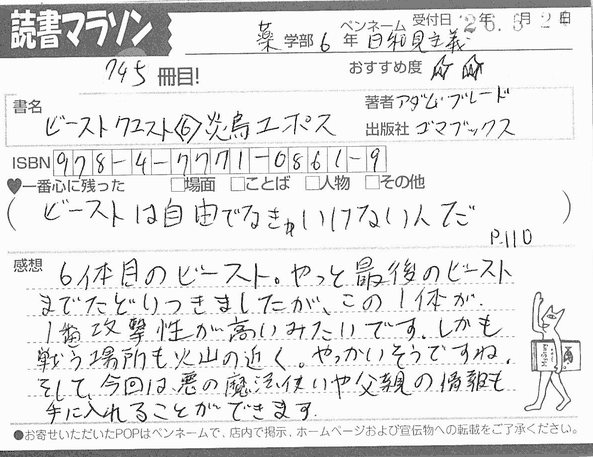 読書マラソン
ペンネーム 受付日 '26.5.2
薬 学部 6 年 日和見主義
745 冊目!
おすすめ度
書名
ビーストクエスト⑥炎鳥エポス
著者 アダム・ブレード
出版社 ゴマブックス
ISBN 978-4-7771-0861-9
♥一番心に残った □場面 □ことば □人物 □その他
(ビーストは自由でなきゃいけないんだ)
P.110
感想
6体目のビースト。やっと最後のビースト
までたどりつきましたが、この1体が、
1番攻撃性が高いみたいです。しかも
戦う場所も火山の近く。やっかいそうですね。
そして、今回は悪の魔法使いや父親の情報も
手に入れることができます。
●お寄せいただいたPOPはペンネームで、店内で掲示、ホームページおよび宣伝物への転載をご了承ください。